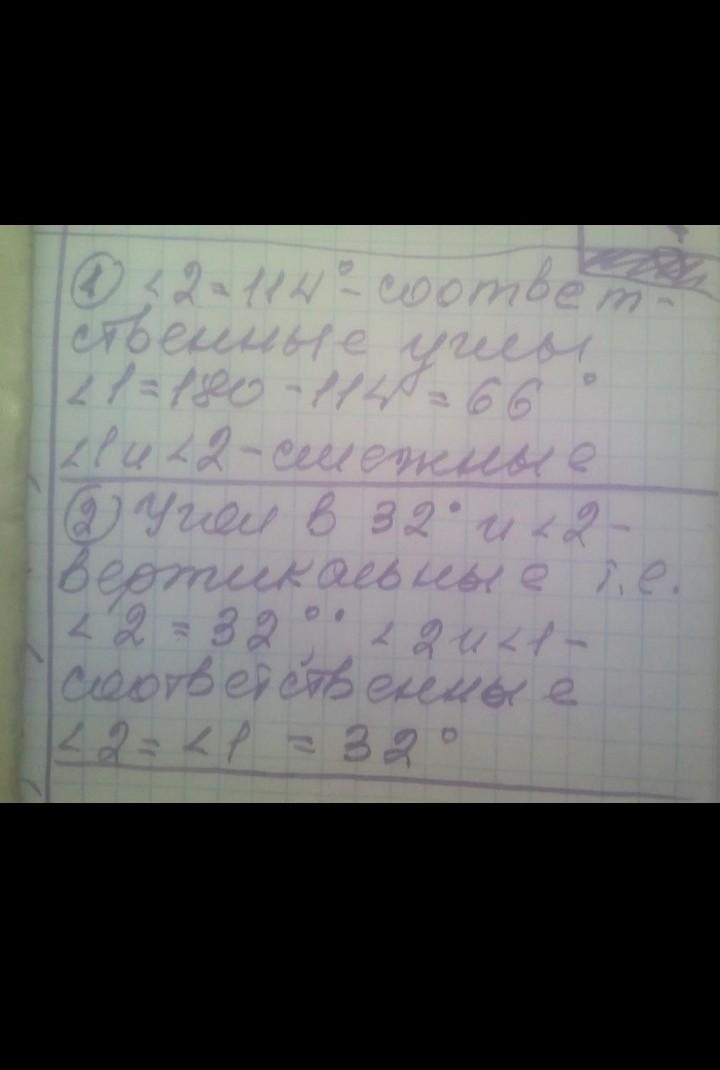 ① <2=114°- соответ-
ственные углы
<1=180-114=66°
<1 и <2-смежные
② Угол в 32° и <2-
вертикальные т.е.
<2=32°; <2 и <1-
соответственные
<2=<1=32°